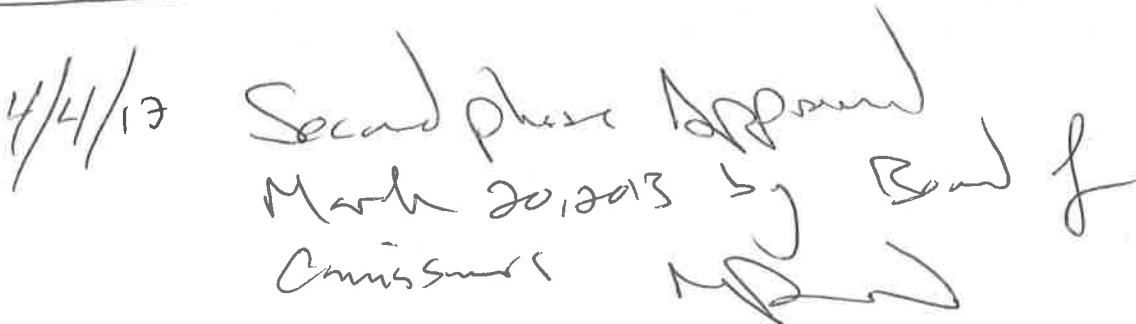 4/4/17 Second phase Approved
March 20, 2013 by Board of
Comissioners